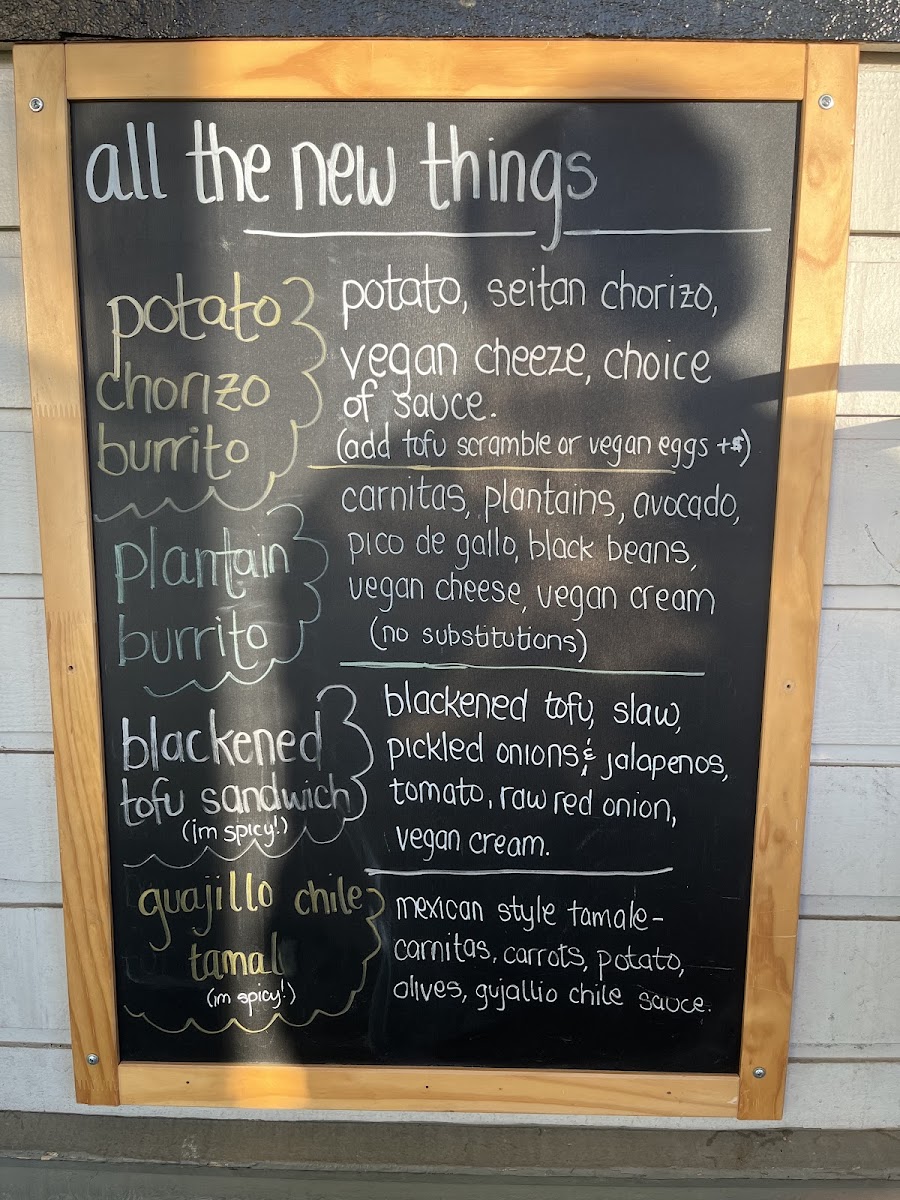 all the new things
potato
chorizo
burrito
potato, seitan chorizo,
vegan cheeze, choice
of sauce.
(add tofu scramble or vegan eggs +$)
plantain
burrito
carnitas, plantains, avocado,
pico de gallo, black beans,
vegan cheese, vegan cream
(no substitutions)
blackened
tofu sandwich
(im spicy!)
blackened tofu, slaw,
pickled onions & jalapenos,
tomato, raw red onion,
vegan cream.
guajillo chile
tamal
(im spicy!)
mexican style tamale-
carnitas, carrots, potato,
olives, gujallio chile sauce.